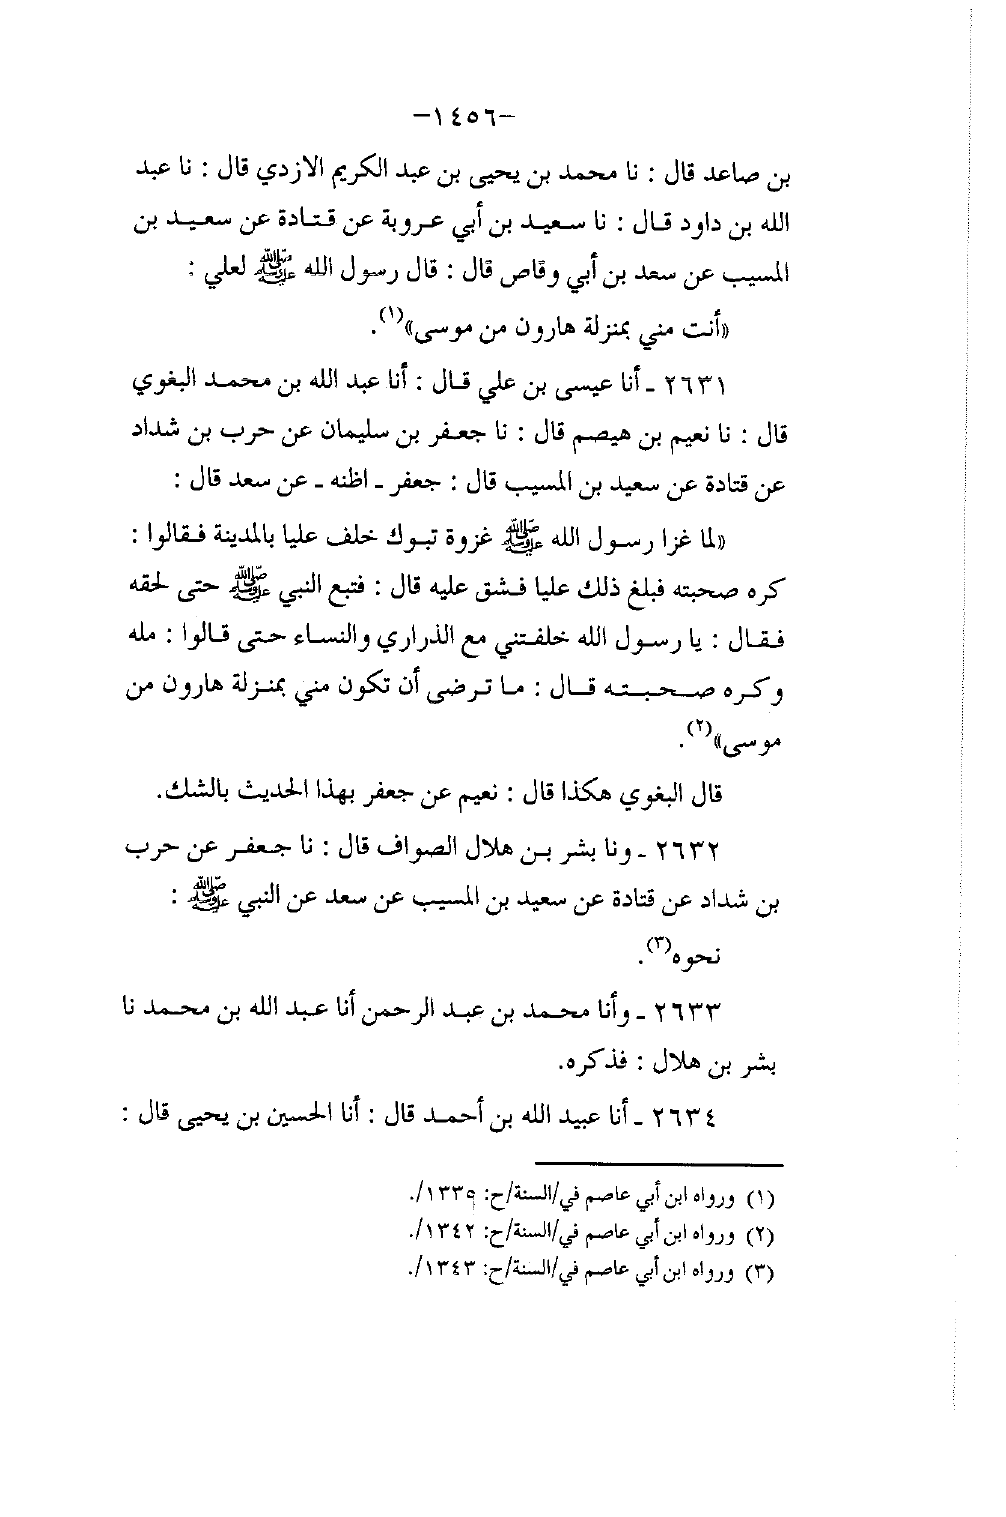 -١٤٥٦-
بن صاعد قال : نا محمد بن يحيى بن عبد الكريم الازدي قال : نا عبد
الله بن داود قال : نا سعيد بن أبي عروبة عن قتادة عن سعيد بن
المسيب عن سعد بن أبي وقاص قال : قال رسول الله ﷺ لعلي :
«أنت مني بمنزلة هارون من موسى»(١).
٢٦٣١ ـ أنا عيسى بن علي قال : أنا عبد الله بن محمد البغوي
قال : نا نعيم بن هيصم قال : نا جعفر بن سليمان عن حرب بن شداد
عن قتادة عن سعيد بن المسيب قال : جعفر ـ اظنه ـ عن سعد قال :
«لما غزا رسول الله ﷺ غزوة تبوك خلف عليا بالمدينة فقالوا :
كره صحبته فبلغ ذلك عليا فشق عليه قال : فتبع النبي ﷺ حتى لحقه
فقال : يا رسول الله خلفتني مع الذراري والنساء حتى قالوا : مله
وكره صحبته قال : ما ترضى أن تكون مني بمنزلة هارون من
موسى»(٢).
قال البغوي هكذا قال : نعيم عن جعفر بهذا الحديث بالشك.
٢٦٣٢ ـ ونا بشر بن هلال الصواف قال : نا جعفر عن حرب
بن شداد عن قتادة عن سعيد بن المسيب عن سعد عن النبي ﷺ :
نحوه(٣).
٢٦٣٣ ـ وأنا محمد بن عبد الرحمن أنا عبد الله بن محمد نا
بشر بن هلال : فذكره.
٢٦٣٤ ـ أنا عبيد الله بن أحمد قال : أنا الحسين بن يحيى قال :
(١) ورواه ابن أبي عاصم في/السنة/ح: ١٣٣٩/.
(٢) ورواه ابن أبي عاصم في/السنة/ح: ١٣٤٢/.
(٣) ورواه ابن أبي عاصم في/السنة/ح: ١٣٤٣/.